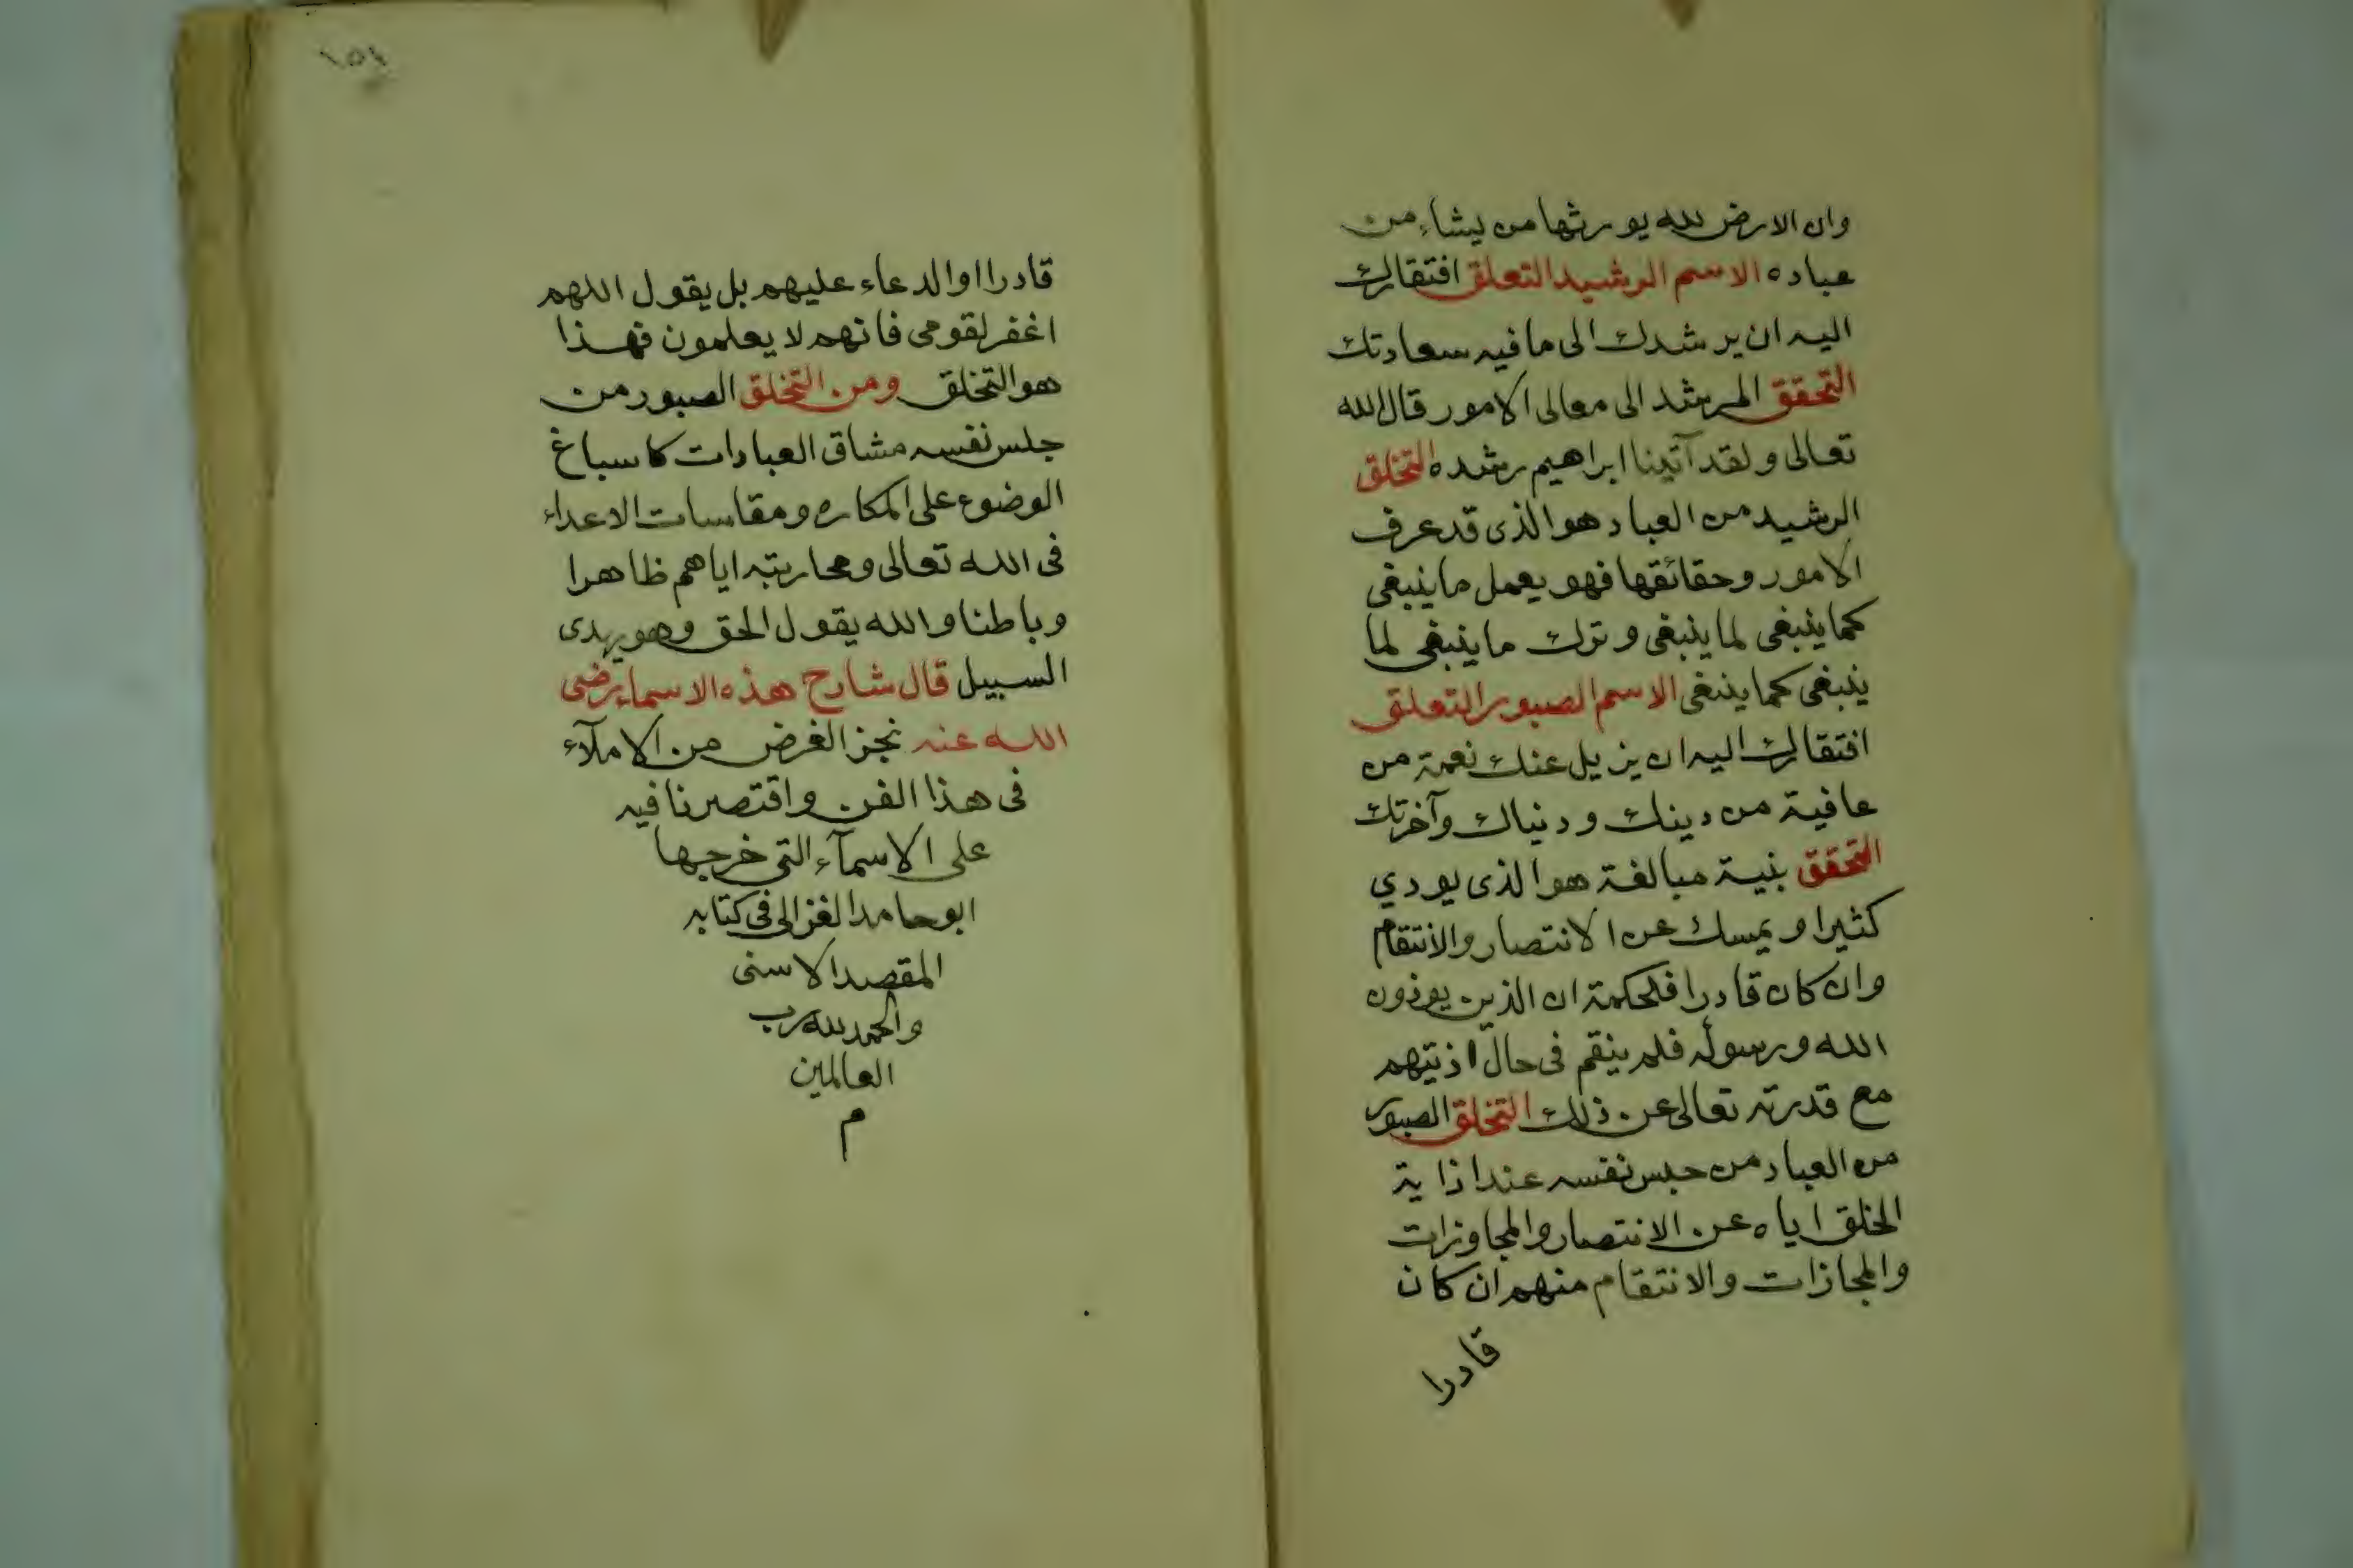 وان الارض لله يورثها من يشاء من
عباده الاسم الرشيد التعلق افتقارك
اليه ان يرشدك الى ما فيه سعادتك
التحقق المرشد الى معالى الامور قال الله
تعالى ولقد آتينا ابراهيم رشده التخلق
الرشيد من العباد هو الذى قد عرف
الامور وحقائقها فهو يعمل ما ينبغى
كما ينبغى لما ينبغى وترك ما ينبغى لما
ينبغى كما ينبغى الاسم الصبور التعلق
افتقارك اليه ان يزيل عنك نعمة من
عافية من دينك ودنياك وآخرتك
التحقق بنية مبالغة هو الذى يودي
كثيرا ويمسك عن الانتصار والانتقام
وان كان قادرا فلحكمة ان الذين يوذون
الله ورسوله فلم ينقم فى حال اذيتهم
مع قدرته تعالى عن ذلك التخلق الصبور
من العباد من حبس نفسه عند اذاية
الخلق اياه عن الانتصار والمجاوزات
والمجازات والانتقام منهم ان كان
قادرا
١٥٤
قادرا او الدعاء عليهم بل يقول اللهم
اغفر لقومى فانهم لا يعلمون فهذا
هو التخلق ومن التخلق الصبور من
جلس نفسه مشاق العبادات كاسباغ
الوضوء على المكاره ومقاسات الاعداء
فى الله تعالى ومحاربته اياهم ظاهرا
وباطنا والله يقول الحق وهو يهدى
السبيل قال شارح هذه الاسماء رضى
الله عنه نجز الغرض من الاملآء
فى هذا الفن واقتصرنا فيه
على الاسمآء التى خرجها
ابو حامد الغزالى فى كتابه
المقصد الاسنى
والحمد لله رب
العالمين
م